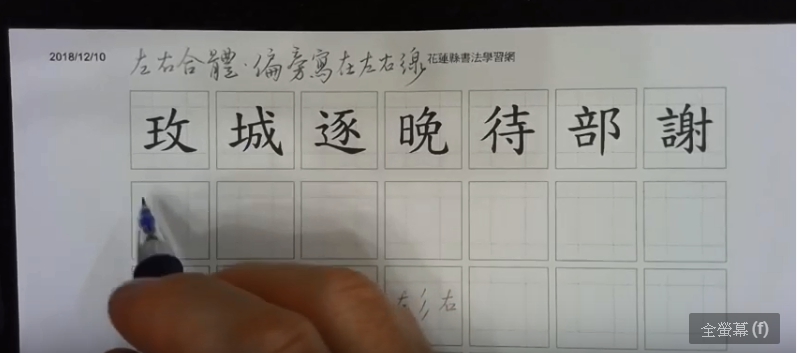 2018/12/10 左右合體·偏旁寫在左右線 花蓮縣書法學習網
玫 城 逐 晚 待 部 謝
左 右
全螢幕 (f)